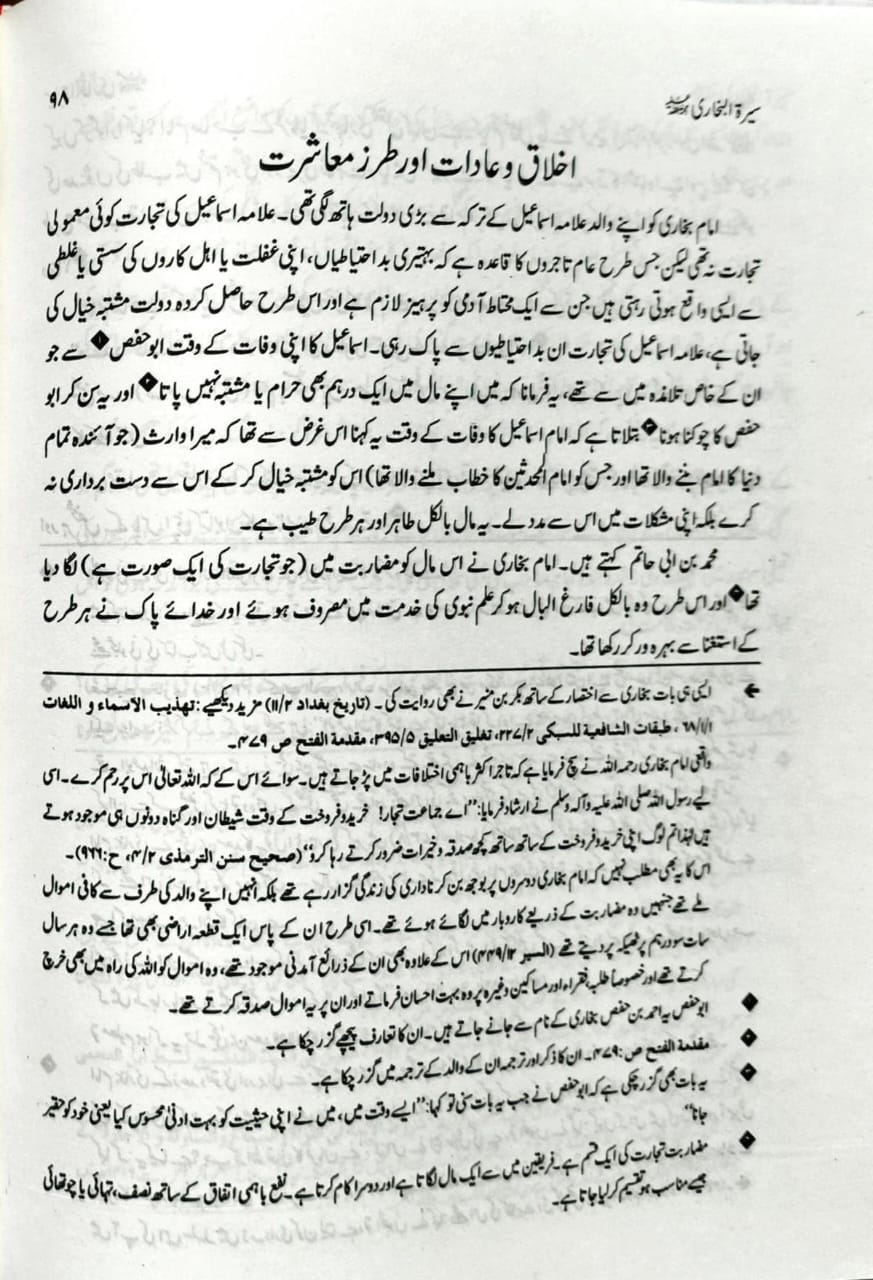 سیرۃ البخاری رحمۃ اللہ علیہ
۹۸
اخلاق و عادات اور طرز معاشرت
امام بخاری کو اپنے والد علامہ اسماعیل کے ترکہ سے بڑی دولت ہاتھ لگی تھی۔ علامہ اسماعیل کی تجارت کوئی معمولی
تجارت نہ تھی لیکن جس طرح عام تاجروں کا قاعدہ ہے کہ بہتیری بد احتیاطیاں، اپنی غفلت یا اہل کاروں کی سستی یا غلطی
سے ایسی واقع ہوتی رہتی ہیں جن سے ایک محتاط آدمی کو پرہیز لازم ہے اور اس طرح حاصل کردہ دولت مشتبہ خیال کی
جاتی ہے، علامہ اسماعیل کی تجارت ان بد احتیاطیوں سے پاک رہی۔ اسماعیل کا اپنی وفات کے وقت ابو حفص ۱ سے جو
ان کے خاص تلامذہ میں سے تھے، یہ فرمانا کہ میں اپنے مال میں ایک درہم بھی حرام یا مشتبہ نہیں پاتا ۲ اور یہ سن کر ابو
حفص کا چوکنا ہونا ۳ بتلاتا ہے کہ امام اسماعیل کا وفات کے وقت یہ کہنا اس غرض سے تھا کہ میرا وارث (جو آئندہ تمام
دنیا کا امام بننے والا تھا اور جس کو امام المحدثین کا خطاب ملنے والا تھا) اس کو مشتبہ خیال کر کے اس سے دست برداری نہ
کرے بلکہ اپنی مشکلات میں اس سے مدد لے۔ یہ مال بالکل طاہر اور ہر طرح طیب ہے۔
محمد بن ابی حاتم کہتے ہیں۔ امام بخاری نے اس مال کو مضاربت میں (جو تجارت کی ایک صورت ہے) لگا دیا
تھا ۴ اور اس طرح وہ بالکل فارغ البال ہو کر علم نبوی کی خدمت میں مصروف ہوئے اور خدائے پاک نے ہر طرح
کے استغنا سے بہرہ ور کر رکھا تھا۔
← ایسی ہی بات بخاری سے اختصار کے ساتھ بکر بن منیر نے بھی روایت کی۔ (تاریخ بغداد ۱۱/۲) مزید دیکھیے: تهذيب الأسماء و اللغات
۶۸/۱/۱، طبقات الشافعية للسبكي ۲۲۷/۲، تغليق التعليق ۳۹۵/۵، مقدمة الفتح ص ۴۷۹۔
واقعی امام بخاری رحمہ اللہ نے سچ فرمایا ہے کہ تاجر اکثر باہمی اختلافات میں پڑ جاتے ہیں۔ سوائے اس کے کہ اللہ تعالیٰ اس پر رحم کرے۔ اسی
لیے رسول اللہ صلی اللہ علیہ وآلہ وسلم نے ارشاد فرمایا: ”اے جماعت تجار! خرید و فروخت کے وقت شیطان اور گناہ دونوں ہی موجود ہوتے
ہیں لہٰذا تم لوگ اپنی خرید و فروخت کے ساتھ ساتھ کچھ صدقہ و خیرات ضرور کرتے رہا کرو“ (صحيح سنن الترمذی ۴/۲، ح: ۹۶۶)۔
اس کا یہ بھی مطلب نہیں کہ امام بخاری دوسروں پر بوجھ بن کر ناداری کی زندگی گزار رہے تھے بلکہ انہیں اپنے والد کی طرف سے کافی اموال
ملے تھے جنہیں وہ مضاربت کے ذریعے کاروبار میں لگائے ہوئے تھے۔ اسی طرح ان کے پاس ایک قطعہ اراضی بھی تھا جسے وہ ہر سال
سات سو درہم پر ٹھیکہ پر دیتے تھے (السیر ۴۴۹/۱۲) اس کے علاوہ بھی ان کے ذرائع آمدنی موجود تھے، وہ اموال کو اللہ کی راہ میں بھی خرچ
کرتے تھے اور خصوصاً طلبہ، فقراء اور مساکین وغیرہ پر وہ بہت احسان فرماتے اور ان پر یہ اموال صدقہ کرتے تھے۔
۱ ابو حفص یہ احمد بن حفص بخاری کے نام سے جانے جاتے ہیں۔ ان کا تعارف پیچھے گزر چکا ہے۔
۲ مقدمة الفتح ص: ۴۷۹۔ ان کا ذکر اور ترجمہ ان کے والد کے ترجمہ میں گزر چکا ہے۔
۳ یہ بات بھی گزر چکی ہے کہ ابو حفص نے جب یہ بات سنی تو کہا: ”ایسے وقت میں، میں نے اپنی حیثیت کو بہت ادنیٰ محسوس کیا یعنی خود کو حقیر
جانا“
۴ مضاربت تجارت کی ایک قسم ہے۔ فریقین میں سے ایک مال لگاتا ہے اور دوسرا کام کرتا ہے۔ نفع باہمی اتفاق کے ساتھ نصف، تہائی یا چوتھائی
جیسے مناسب ہو تقسیم کر لیا جاتا ہے۔